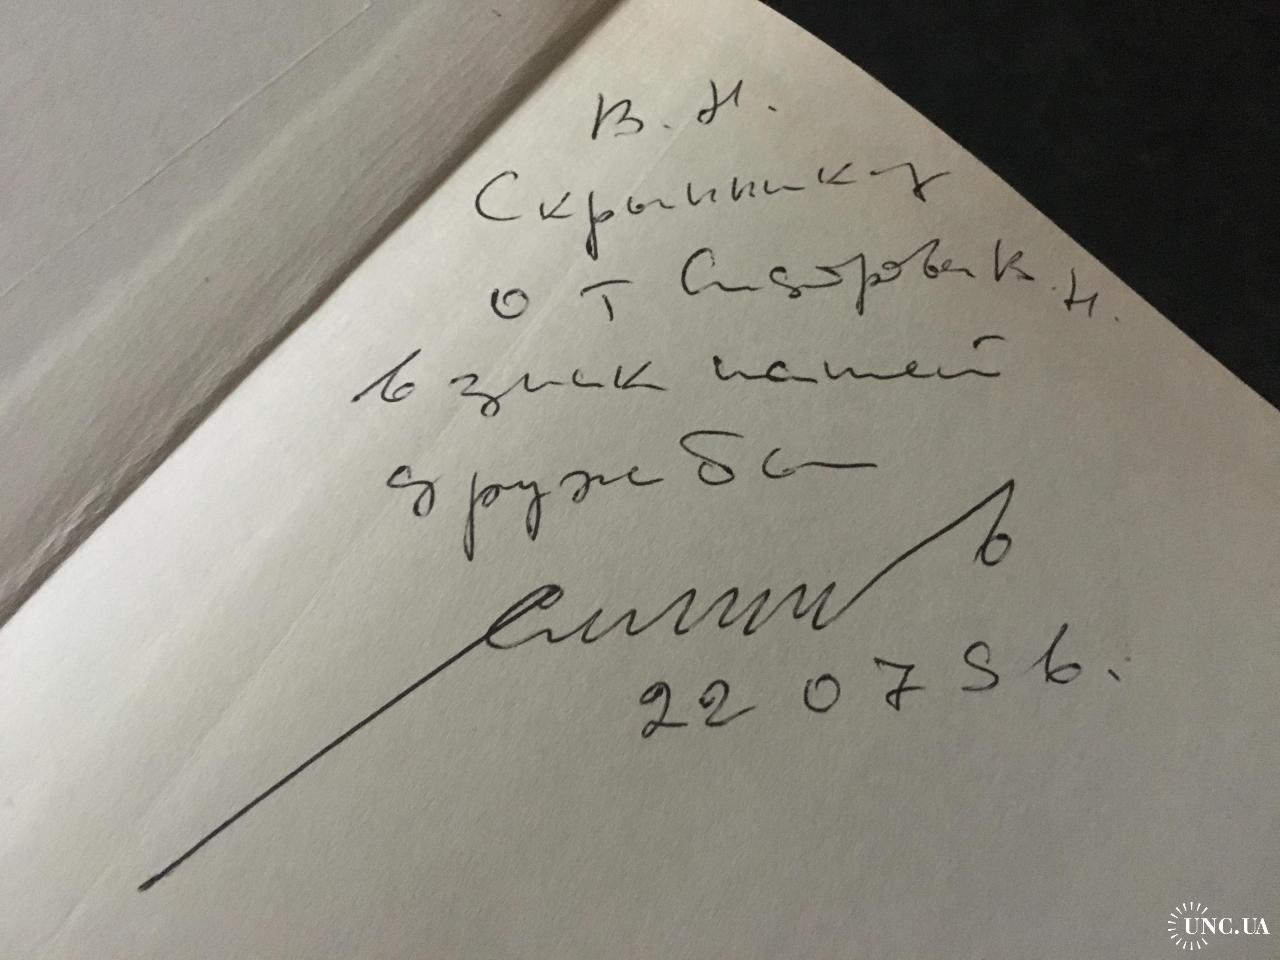 В. Н.
Скрыннику
от Сидорова К. Н.
в знак нашей
дружбы
22 07 96.
UNC.UA